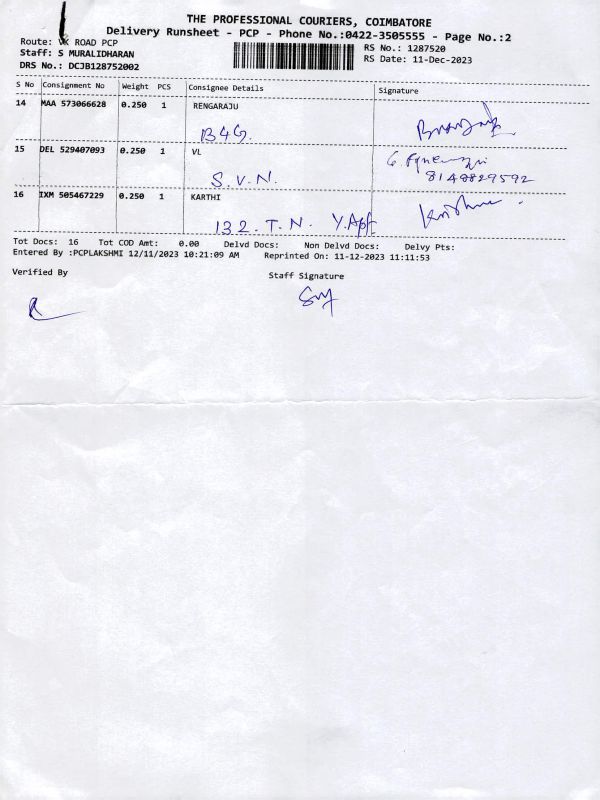 THE PROFESSIONAL COURIERS, COIMBATORE
Delivery Runsheet - PCP - Phone No.:0422-3505555 - Page No.:2
Route: VK ROAD PCP
RS No.: 1287520
Staff: S MURALIDHARAN
RS Date: 11-Dec-2023
DRS No.: DCJB128752002
S No Consignment No Weight PCS Consignee Details Signature
14 MAA 573066628 0.250 1 RENGARAJU
B4G.
15 DEL 529407093 0.250 1 VL
S.V.N. 8148829592
16 IXM 505467229 0.250 1 KARTHI
132. T. N. Y.Apt
Tot Docs: 16 Tot COD Amt: 0.00 Delvd Docs: Non Delvd Docs: Delvy Pts:
Entered By :PCPLAKSHMI 12/11/2023 10:21:09 AM Reprinted On: 11-12-2023 11:11:53
Verified By Staff Signature